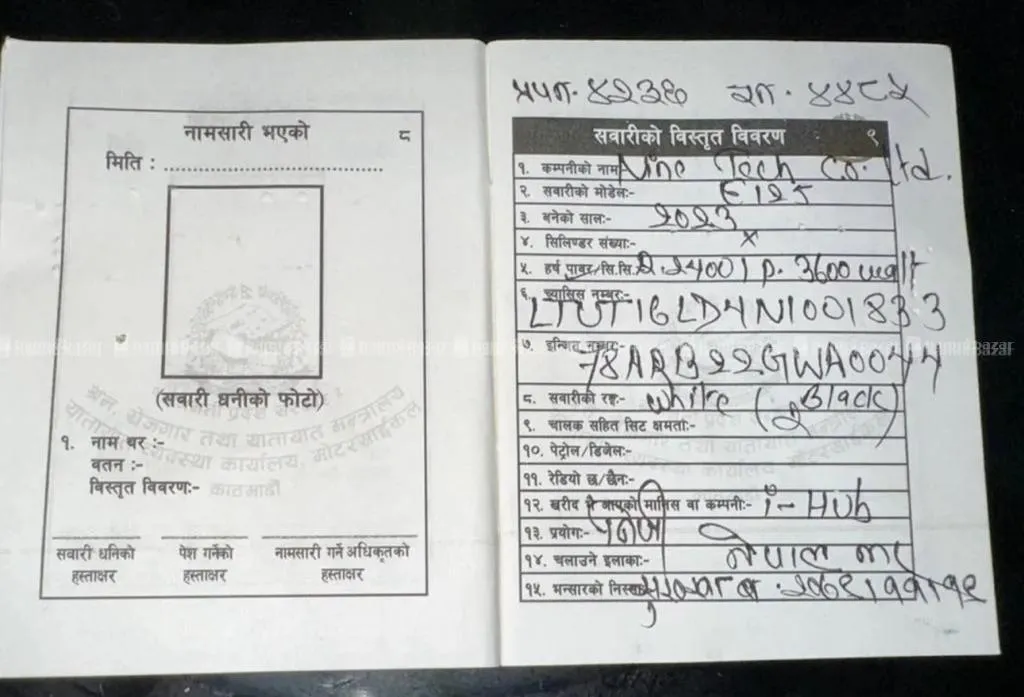 नामसारी भएको ८
मिति :
(सवारी धनीको फोटो)
श्रम, रोजगार तथा यातायात मन्त्रालय
यातायात व्यवस्था कार्यालय, मोटरसाईकल
काठमाडौं
१. नाम थर :-
वतन :-
विस्तृत विवरण:-
सवारी धनिको हस्ताक्षर
पेश गर्नेको हस्ताक्षर
नामसारी गर्ने अधिकृतको हस्ताक्षर
प्रपन. ४२३६ रन. ४४८५
सवारीको विस्तृत विवरण ९
१. कम्पनीको नाम Nine Tech Co. Ltd.
२. सवारीको मोडेल:- E125
३. बनेको साल:- 2023
४. सिलिण्डर संख्या:- x
५. हर्ष पावर/सि.सि. 2400 / P. 3600 watt
६. च्यासिस नम्बर:-
७. इन्जिन नम्बर:-
78ARB22GWA0044
८. सवारीको रङ्ग:- White (Black)
९. चालक सहित सिट क्षमता:- 2
१०. पेट्रोल/डिजेल:-
११. रेडियो छ/छैन:-
१२. खरीद गरी आएको मानिस वा कम्पनी:- i-Hub
१३. प्रयोग:- निजी
१४. चलाउने इलाका:- नेपाल भर
१५. भन्सारको निस्सा